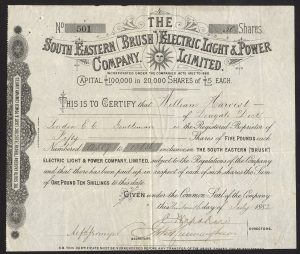 THE
No 501 50 Shares.
SOUTH EASTERN (BRUSH) ELECTRIC LIGHT & POWER
COMPANY, LIMITED.
INCORPORATED UNDER THE COMPANIES ACTS 1862 TO 1880
CAPITAL £100,000 IN 20,000 SHARES OF £5 EACH.
THIS IS TO CERTIFY that William Harvest
of Dowgate Dock
London E.C. Gentleman is the Registered Proprietor of
Fifty Shares of FIVE POUNDS each
Numbered to inclusive in THE SOUTH EASTERN (BRUSH)
ELECTRIC LIGHT & POWER COMPANY, LIMITED, subject to the Regulations of the Company
and that there has been paid up in respect of each of such Shares the Sum
of ONE POUND TEN SHILLINGS to this date.
GIVEN under the Common Seal of the Company
this day of July 1882
DIRECTORS.
SECRETARY.
N.B. THIS CERTIFICATE MUST BE SURRENDERED BEFORE ANY TRANSFER OF THE ABOVE SHARES CAN BE REGISTERED